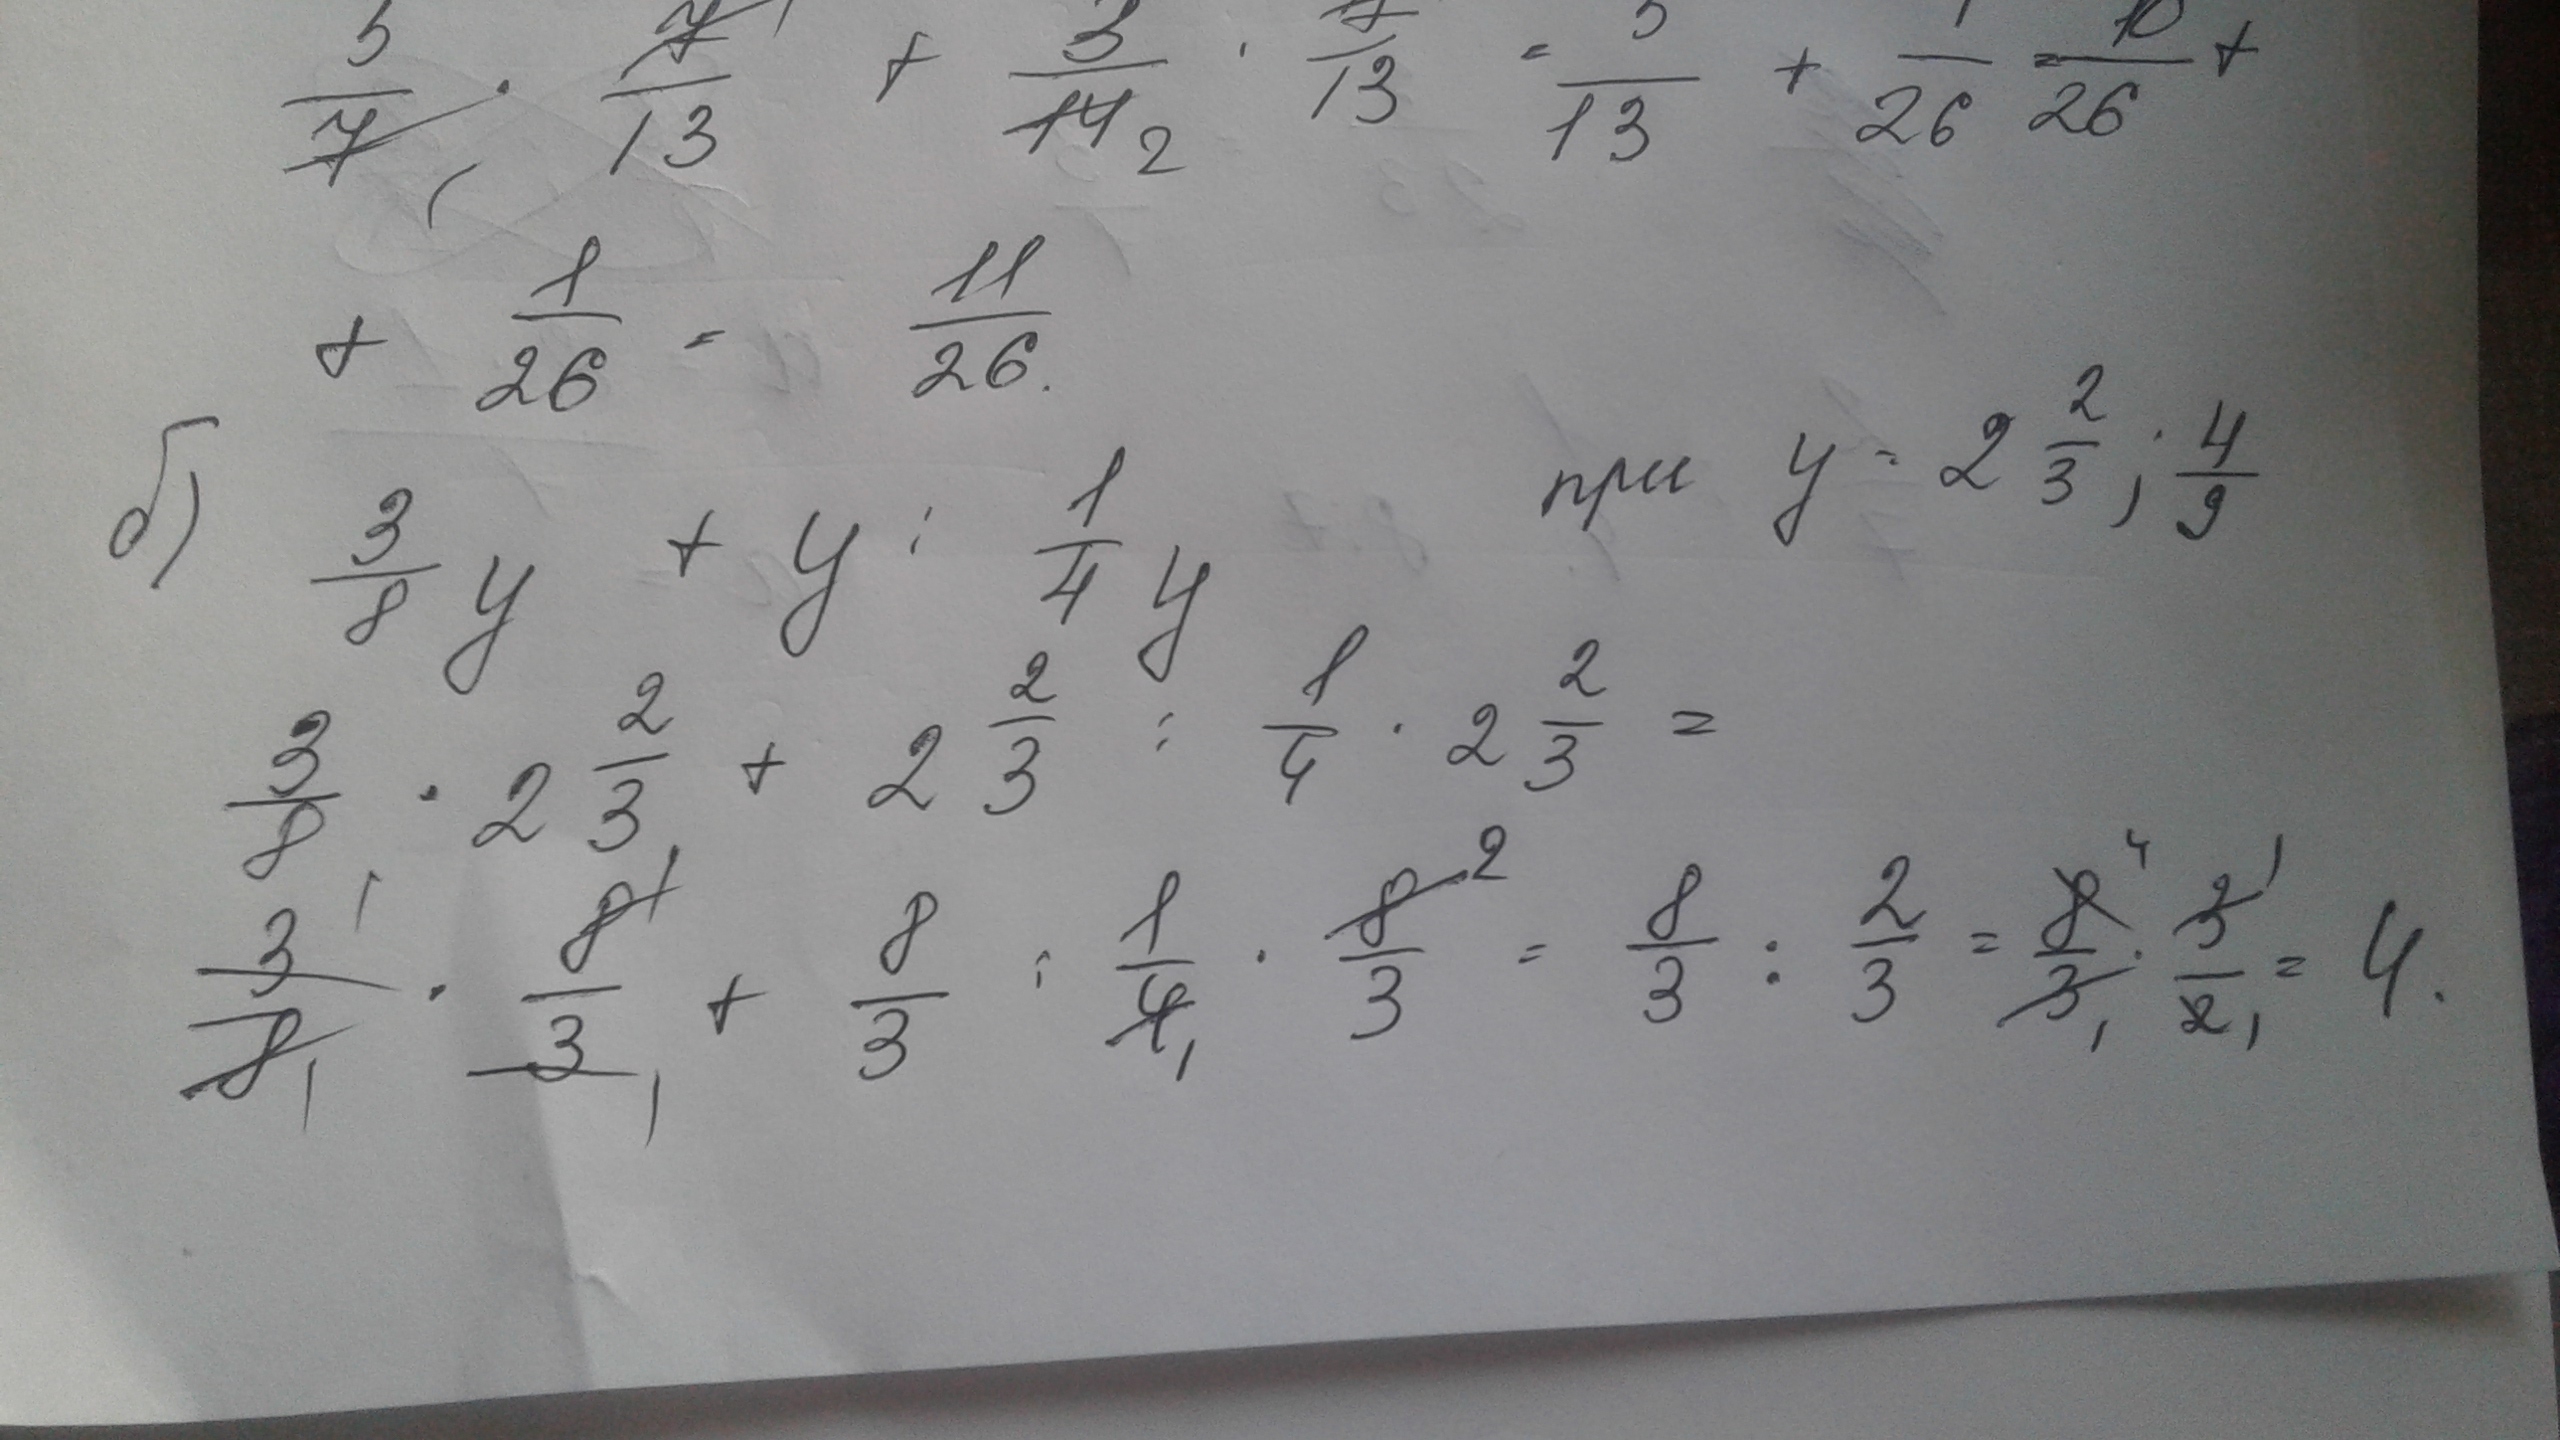 5/7 · 7/13 + 3/14 2 · 7/13 = 5/13 + 1/26 = 10/26 +
+ 1/26 = 11/26.
б) 3/8 y + y : 1/4 y при y = 2 2/3 ; 4/9
3/8 · 2 2/3 + 2 2/3 : 1/4 · 2 2/3 =
3/8 · 8/3 + 8/3 : 1/4 · 8/3 = 8/3 : 2/3 = 8/3 · 3/2 = 4.